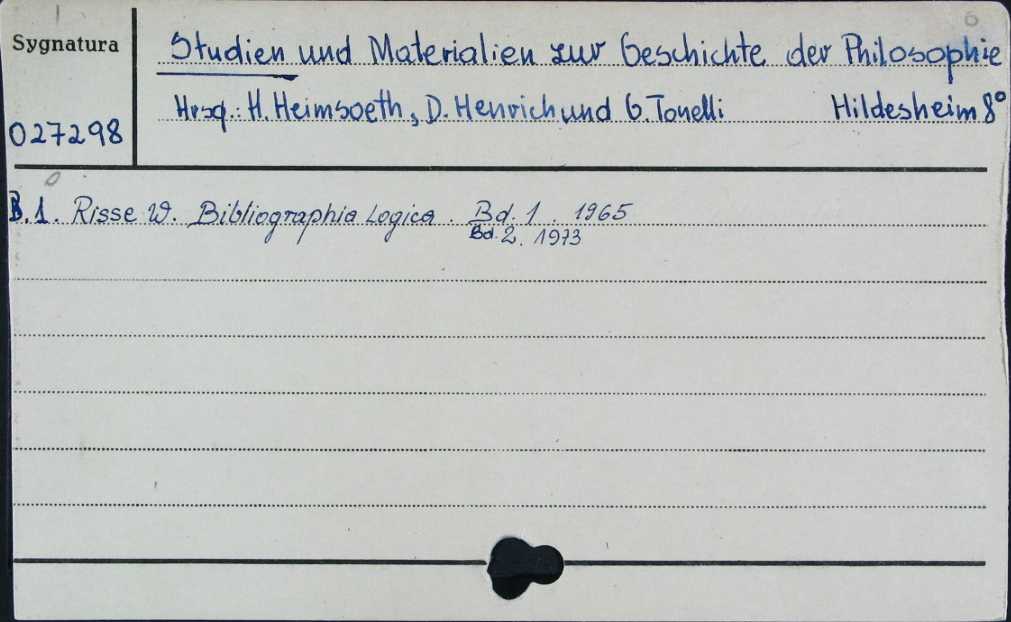 Sygnatura
027298
Studien und Materialien zur Geschichte der Philosophie
Hrsg.: H. Heimsoeth, D. Henrich und G. Tonelli Hildesheim 8°
B.1. Risse W. Bibliographia Logica. Bd. 1. 1965
Bd. 2. 1973